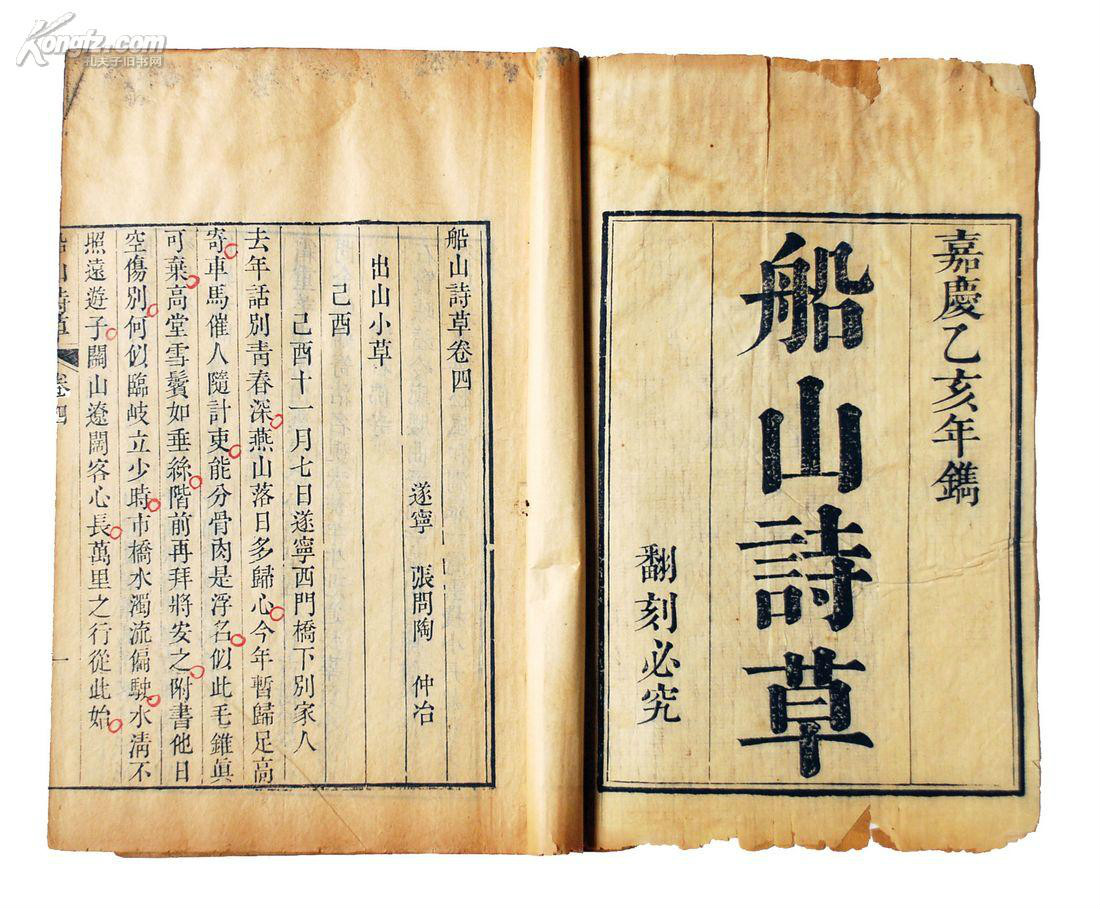 Kongfz.com
孔夫子旧书网
嘉慶乙亥年鐫
船山詩草
翻刻必究
船山詩草卷四
遂寧 張問陶 仲冶
出山小草
己酉
己酉十一月七日遂寧西門橋下別家人
去年話別靑春深燕山落日多歸心今年暫歸足高
寄車馬催人隨計吏能分骨肉是浮名似此毛錐眞
可棄高堂雪鬢如垂絲階前再拜將安之附書他日
空傷別何似臨岐立少時市橋水濁流偏駛水淸不
照遠遊子關山遼闊客心長萬里之行從此始
船山詩草 卷四 一